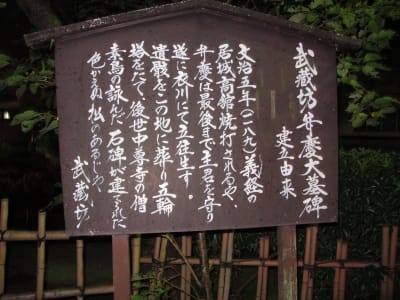 武蔵坊弁慶大墓碑
建立由来
文治五年(一一八九)義経の
居城高館焼打されるや、
弁慶は最後まで主君を守り
遂に衣川にて立往生す。
遺骸をこの地に葬り五輪
塔をたて、後世中尊寺の僧
素鳥の詠んだ石碑が建てられた
色かえぬ松のあるじや
武蔵坊